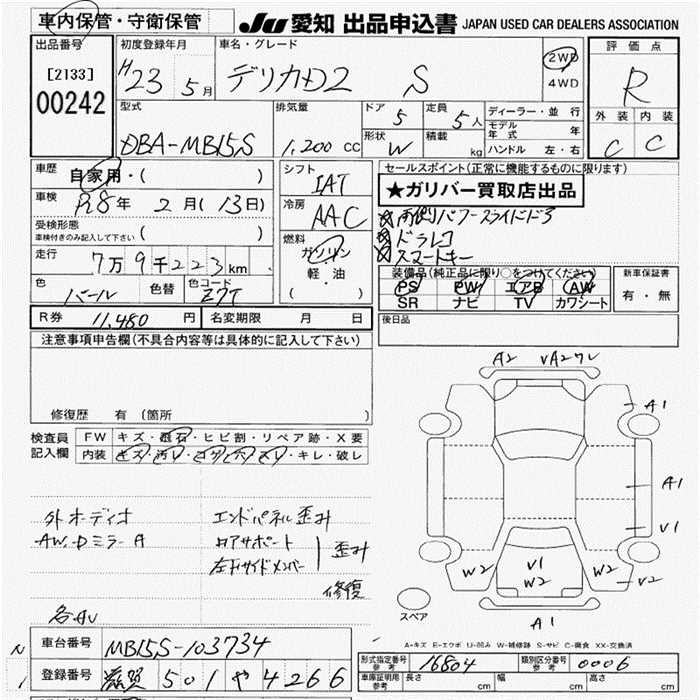 車内保管・守衛保管 JU 愛知 出品申込書 JAPAN USED CAR DEALERS ASSOCIATION
出品番号 初度登録年月 車名・グレード 評価点
[2133] H23 5月 デリカD2 S 2WD 4WD R
00242
型式 排気量 ドア 定員 ディーラー・並行 外装 内装
5 5人 モデル年式 年
DBA-MB15S 1,200 cc 形状 W 積載 kg ハンドル 左・右 C C
車歴 シフト セールスポイント(正常に機能するものに限ります)
自家用・( ) IAT ★ガリバー買取店出品
車検 R8年 2月(13日) 冷房
両側パワースライドドア
受検形態 AAC ドラレコ
車検付きのみ記入して下さい ( ) 燃料 スマートキー
走行 7万9千223km ガソリン 装備品(純正品に限り○をつけてください) 新車保証書
軽・油 PS PW エアB AW 有・無
色 パール 色替 色コード Z7T ( ) SR ナビ TV カワシート
R券 11,480円 名変期限 月 日 後日品
注意事項申告欄(不具合内容等は具体的に記入して下さい)
A2 VA2ワレ
A1
修復歴 有 (箇所 )
検査員 FW キズ・飛石・ヒビ割・リペア跡・X要
記入欄 内装 キズ・汚レ・コゲ・穴・スレ・キレ・破レ
A1
外オーディオ エンドパネル歪み V1
AW.Dミラー A リアサポート 歪み
左リヤサイドメンバー
W2 V1 W2 W2 V2
修復
スペア
各AU A1
A-キズ E-エクボ U-凹み W-補修跡 S-サビ C-腐食 XX-交換済
車台番号 MB15S-103734
型式指定番号 参考 16804 類別区分番号 参考 0006
登録番号 滋賀 501 や 4266
車庫証明用 参考 長さ cm 幅 cm 高さ cm